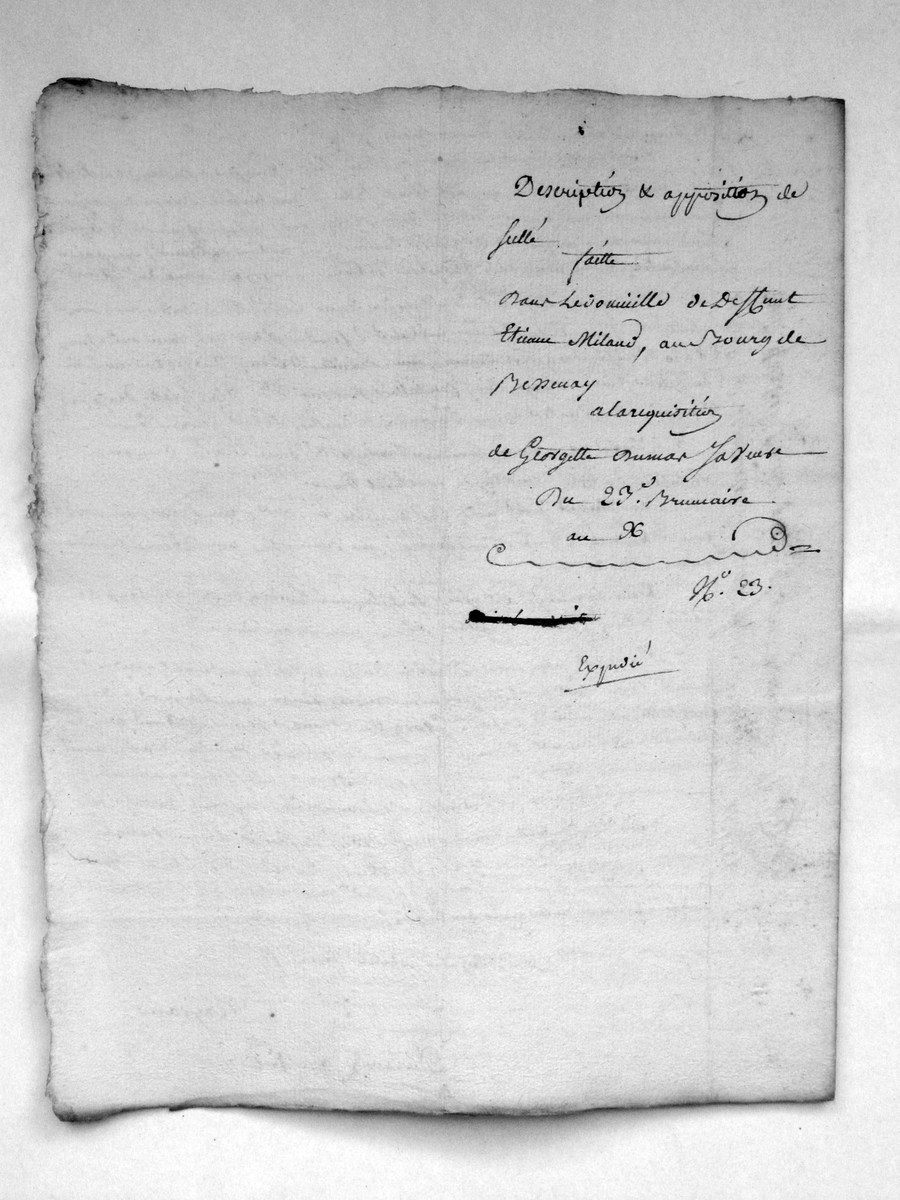 Description & apposition de
scellé
faitte
Dans Le domicille de Deffunt
Etienne Miland, au Bourg de
Bessenay
a la requisition
de Georgette Dumas Sa Veuve
Du 23.e Brumaire
an X
N.o 23.
Expedié